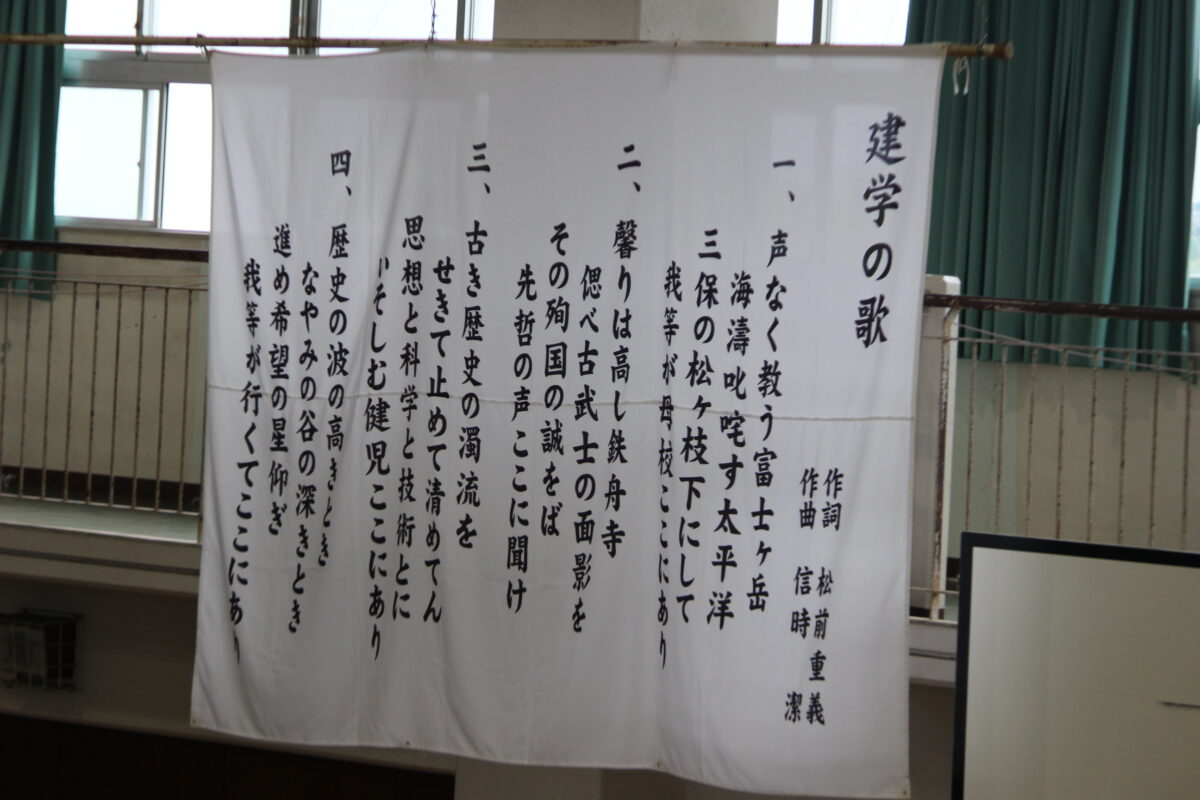 建学の歌
作詞 松前重義
作曲 信時 潔
一、声なく教う富士ヶ岳
海濤叱咤す太平洋
三保の松ヶ枝下にして
我等が母校ここにあり
二、馨りは高し鉄舟寺
偲べ古武士の面影を
その殉国の誠をば
先哲の声ここに聞け
三、古き歴史の濁流を
せきて止めて清めてん
思想と科学と技術とに
いそしむ健児ここにあり
四、歴史の波の高きとき
なやみの谷の深きとき
進め希望の星仰ぎ
我等が行くてここにあり